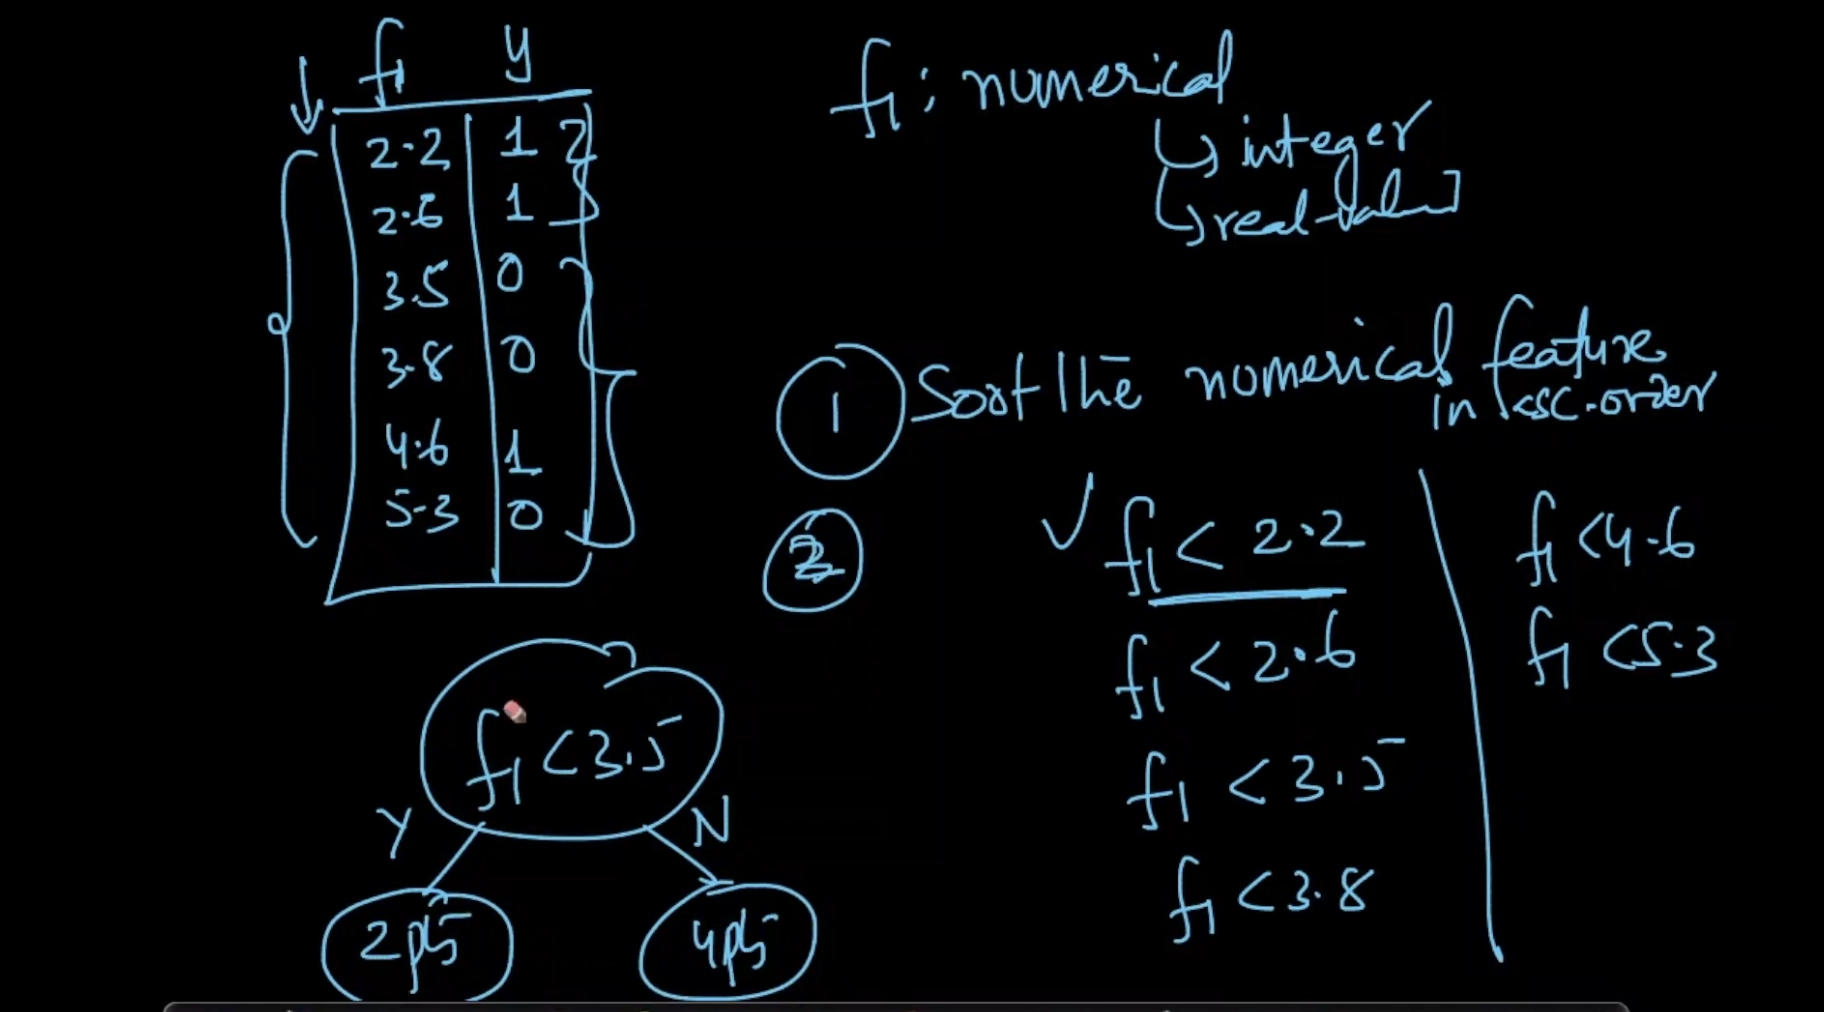 f1 y
2.2 1
2.6 1
3.5 0
3.8 0
4.6 1
5.3 0
f1 : numerical
integer
real-valued
1 Sort the numerical feature
in asc-order
2
f1 < 2.2
f1 < 2.6
f1 < 3.5
f1 < 3.8
f1 < 4.6
f1 < 5.3
f1 < 3.5
Y N
2 pts 4 pts